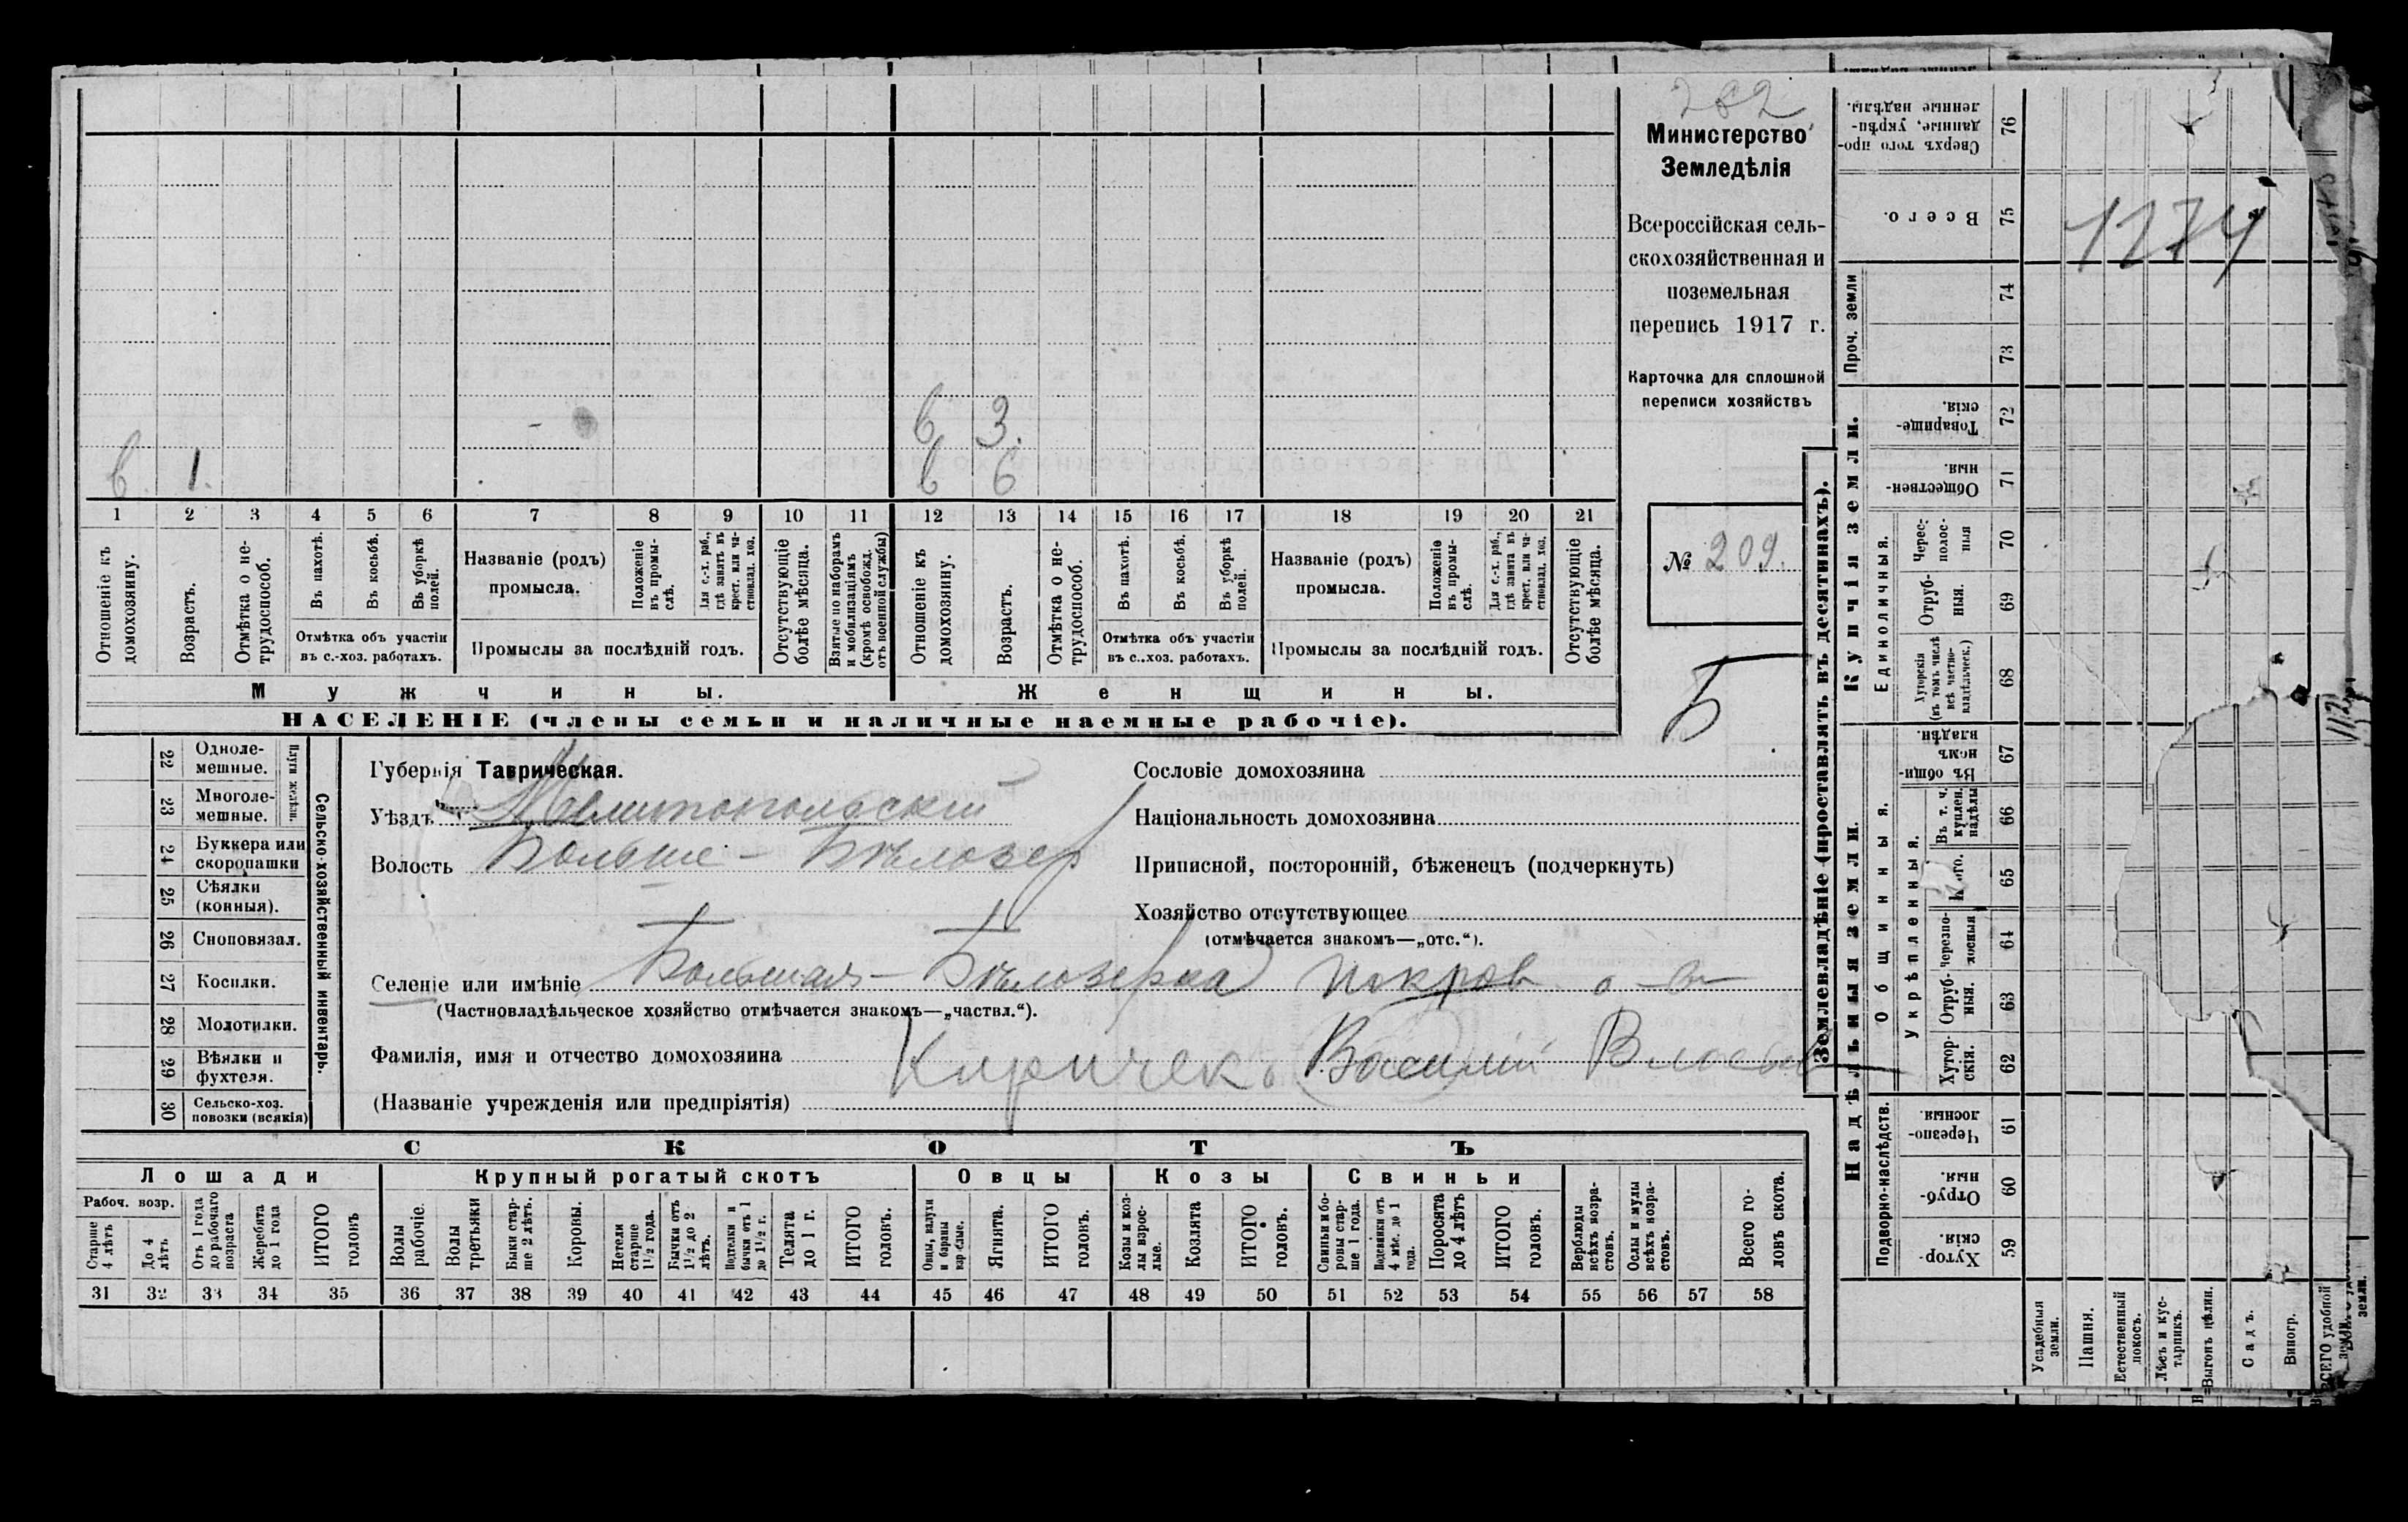 282
Министерство
Земледѣлія
Всероссійская сель-
скохозяйственная и
поземельная
перепись 1917 г.
Карточка для сплошной
переписи хозяйствъ
№ 209.
Б
в 3.
в. 1. в 6
1 2 3 4 5 6 7 8 9 10 11 12 13 14 15 16 17 18 19 20 21
Отношеніе къ домохозяину.
Возрастъ.
Отмѣтка о не-трудоспособ.
Въ пахотѣ.
Въ косьбѣ.
Въ уборкѣ полей.
Отмѣтка объ участіи
въ с.-хоз. работахъ.
Названіе (родъ)
промысла.
Положеніе въ промы-слѣ.
Для с.-х. раб., гдѣ занятъ въ крест. или ча-стновлад. хоз.
Промыслы за послѣдній годъ.
Отсутствующіе болѣе мѣсяца.
Взятые по наборамъ и мобилизаціямъ (кромѣ освобожд. отъ военной службы)
Отношеніе къ домохозяину.
Возрастъ.
Отмѣтка о не-трудоспособ.
Въ пахотѣ.
Въ косьбѣ.
Въ уборкѣ полей.
Отмѣтка объ участіи
въ с..хоз. работахъ.
Названіе (родъ)
промысла.
Положеніе въ промы-слѣ.
Для с.-х. раб., гдѣ занята въ крест. или ча-стновлад. хоз.
Промыслы за послѣдній годъ.
Отсутствующіе болѣе мѣсяца.
Мужчины. Женщины.
НАСЕЛЕНІЕ (члены семьи и наличные наемные рабочіе).
22 Одноле-мешные.
23 Многоле-мешные.
Плуги желѣзн.
24 Буккера или скоропашки
25 Сѣялки (конныя).
26 Сноповязал.
27 Косилки.
28 Молотилки.
29 Вѣялки и фухтеля.
30 Сельско-хоз. повозки (всякія)
Сельско-хозяйственный инвентарь.
Губернія Таврическая.
Уѣздъ Мелитопольскій
Волость Больше-Бѣлозер
Селеніе или имѣніе Большая-Бѣлозерка Покров. о-в
(Частновладѣльческое хозяйство отмѣчается знакомъ—„частвл.“).
Фамилія, имя и отчество домохозяина Киричекъ Василій
(Названіе учрежденія или предпріятія)
Сословіе домохозяина
Національность домохозяина
Приписной, посторонній, бѣженецъ (подчеркнуть)
Хозяйство отсутствующее
(отмѣчается знакомъ—„отс.“).
СКОТЪ
Лошади Крупный рогатый скотъ Овцы Козы Свиньи
Рабоч. возр.
Старше 4 лѣтъ
До 4 лѣтъ
Отъ 1 года до рабочаго возраста
Жеребята до 1 года
ИТОГО головъ
Волы рабочіе.
Волы третьяки
Быки стар-ше 2 лѣтъ.
Коровы.
Нетели старше 1 1/2 года.
Бычки отъ 1 1/2 до 2 лѣтъ.
Подтелки и бычки отъ 1 до 1 1/2 г.
Телята до 1 г.
ИТОГО головъ.
Овцы, валухи и бараны взрослые.
Ягнята.
ИТОГО головъ.
Козы и коз-лы взрос-лые.
Козлята
ИТОГО головъ.
Свиньи и бо-ровы стар-ше 1 года.
Подсвинки отъ 4 мѣс. до 1 года.
Поросята до 4 лѣтъ
ИТОГО головъ.
Верблюды всѣхъ возра-стовъ.
Ослы и мулы всѣхъ возра-стовъ.
Всего го-ловъ скота.
31 32 33 34 35 36 37 38 39 40 41 42 43 44 45 46 47 48 49 50 51 52 53 54 55 56 57 58
Землевладѣніе (проставлять въ десятинахъ).
Надѣльныя земли. Купчія земли. Проч. земли
Подворно-наслѣдств.
Общинныя.
Укрѣпленныя.
Единоличныя.
Хутор-скія. 59
Отруб-ныя. 60
Черезпо-лосныя. 61
Хутор-скія. 62
Отруб-ныя. 63
Черезпо-лосныя 64
65
Въ т. ч. куплен. надѣлы 66
Въ общи-немъ владѣн. 67
Хуторскія (въ томъ числѣ всѣ частно-владѣльческ.) 68
Отруб-ныя 69
Черес-полос-ныя 70
Обществен-ныя. 71
Товарище-скія. 72
73
74
Всего. 75
Сверхъ того про-данные, укрѣп-ленные надѣлы. 76
1174
Усадебныя земли.
Пашня.
Естественный покосъ.
Лѣсъ и кус-тарникъ.
Выгонъ цѣлин.
Садъ.
Виногр.
ВСЕГО удобной земли.